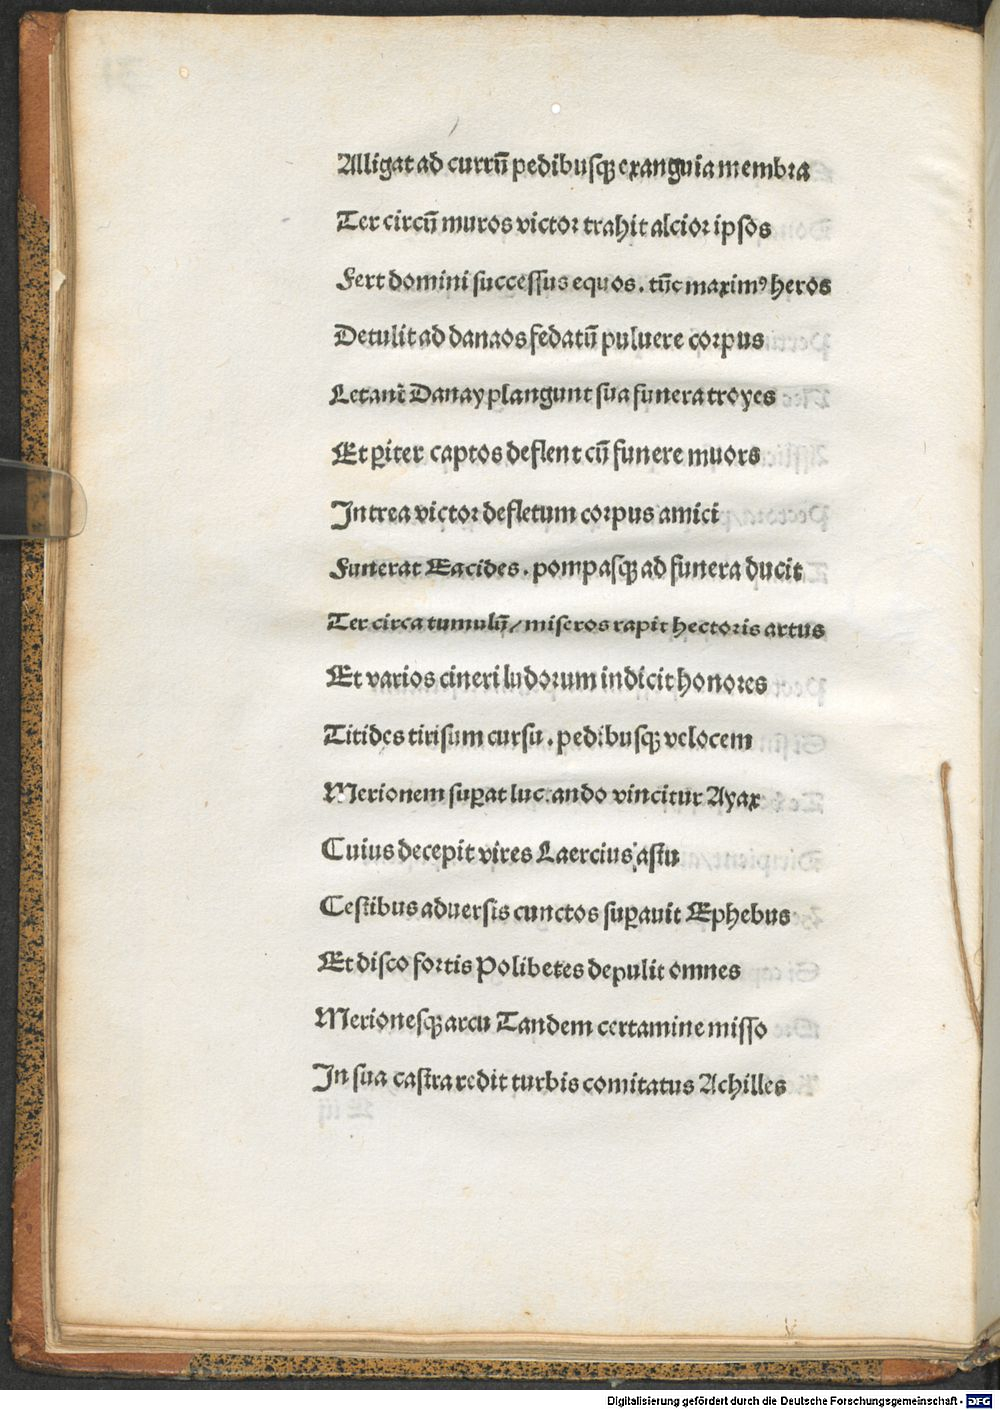 Alligat ad currū pedibusqꝫ exanguia membra
Ter circū muros victor trahit alcior ipsos
Fert domini successus equos . tūc maximꝰ heros
Detulit ad danaos fedatū puluere corpus
Letant̄ Danay plangunt sua funera troyes
Et ꝑiter captos deflent cū funere muors
Intrea victor defletum corpus amici
Funerat Eacides . pompasqꝫ ad funera ducit
Ter circa tumulū / miseros rapit hectoris artus
Et varios cineri ludorum indicit honores
Titides tirisum cursu . pedibusqꝫ velocem
Merionem suꝑat luctando vincitur Ayax
Cuius decepit vires Laercius astu
Cestibus aduersis cunctos suꝑauit Ephebus
Et disco fortis Polibetes depulit omnes
Merionesqꝫ arcu Tandem certamine misso
In sua castra redit turbis comitatus Achilles
Digitalisierung gefördert durch die Deutsche Forschungsgemeinschaft - DFG